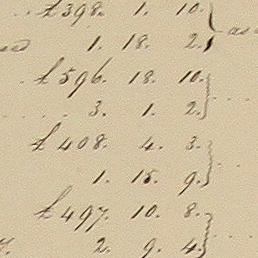 .. £398. 1. 10.
1. 18. 2.
. £596. 18. 10.
. . . . 3. 1. 2.
£408. 4. 3.
1. 15. 9.
£497. 10. 8.
2. 9. 4.